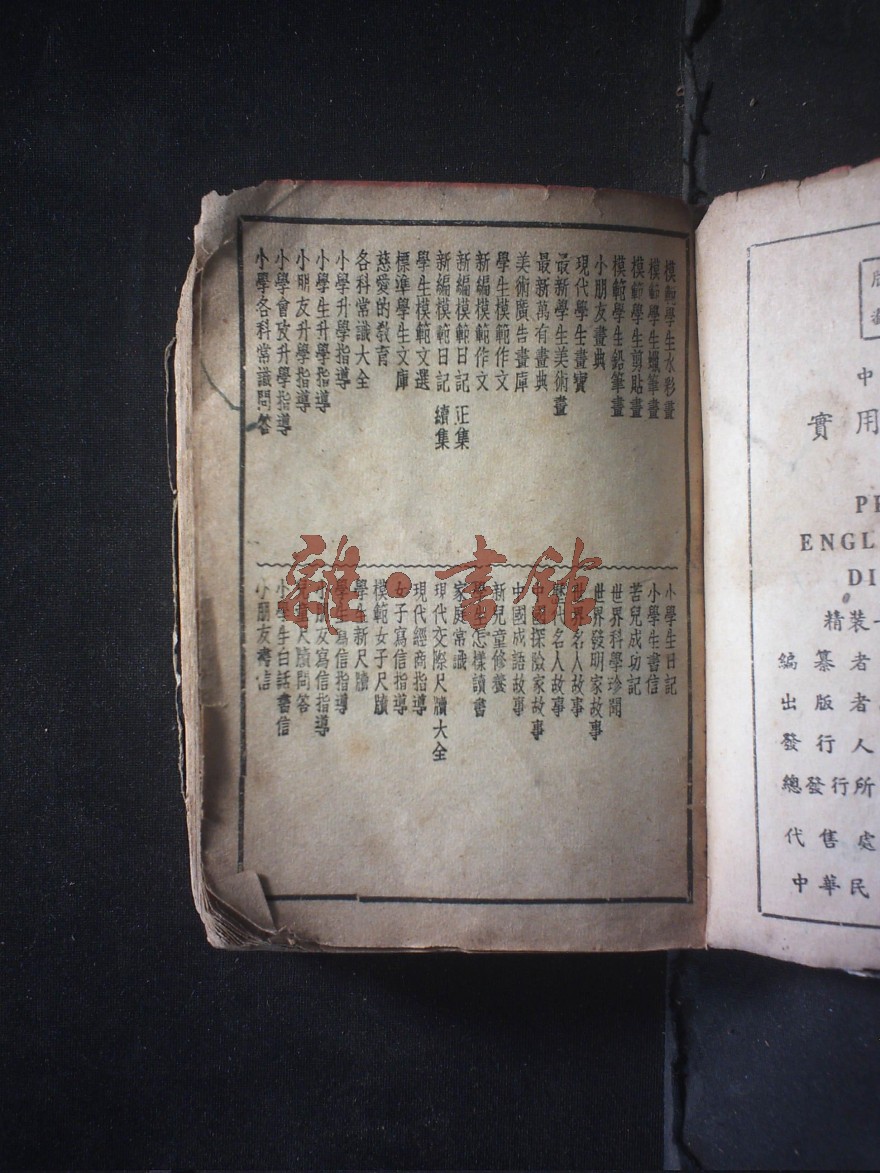 模範學生水彩畫
模範學生蠟筆畫
模範學生剪貼畫
模範學生鉛筆畫
小朋友畫典
現代學生畫寶
最新學生美術畫
最新萬有畫典
美術廣告畫庫
學生模範作文
新編模範作文
新編模範日記 正集
新編模範日記 續集
學生模範文選
標準學生文庫
慈愛的教育
各科常識大全
小學升學指導
小學生升學指導
小朋友升學指導
小學會攷升學指導
小學各科常識問答
小學生日記
小學生書信
苦兒成功記
世界科學珍聞
世界發明家故事
世界名人故事
名人故事
中國探險家故事
中國成語故事
新兒童修養
學生怎樣讀書
家庭常識
現代交際尺牘大全
現代經商指導
女子寫信指導
模範女子尺牘
學生新尺牘
學生寫信指導
小朋友寫信指導
尺牘問答
小學生白話書信
小朋友書信
雜·書館
版
中
實用
ENGL
DI
精裝
編纂者
出版者
發行人
總發行所
代售處
中華民